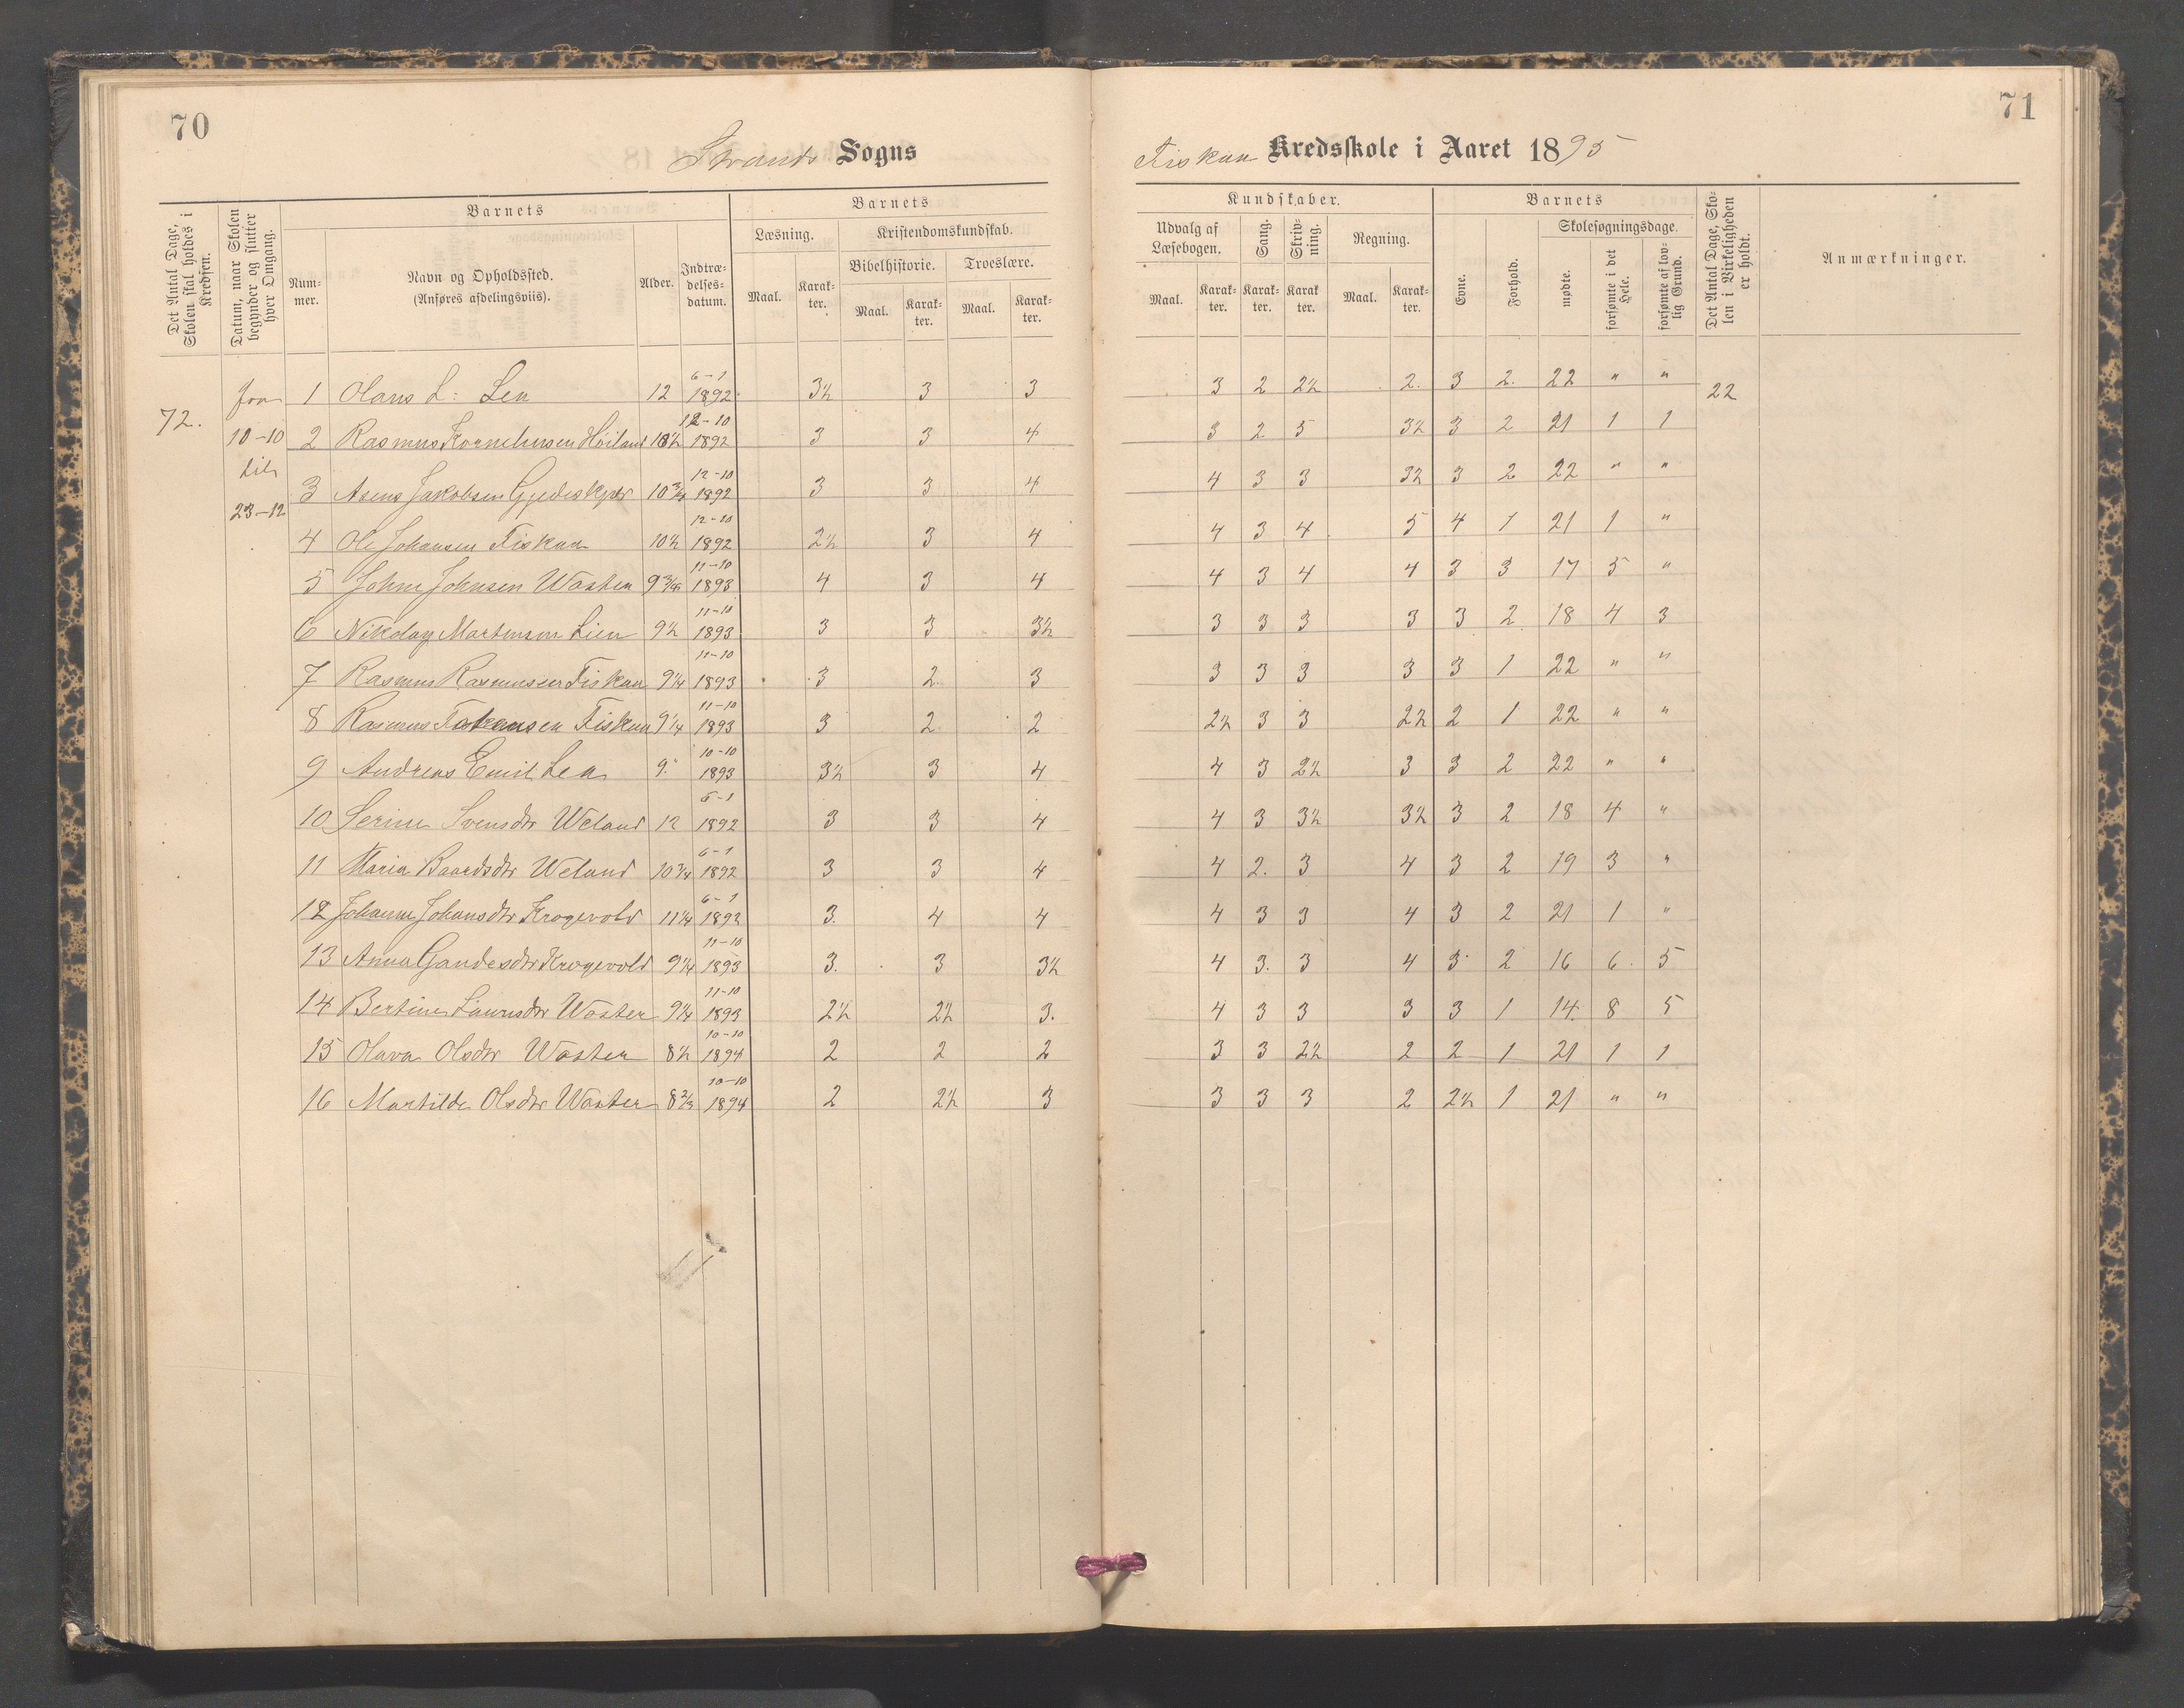 70
71
Strands Sogns
Fiskaa Kredsskole i Aaret 1895
Det Antal Dage, Skolen skal holdes i Kredsen.
Datum, naar Skolen begynder og slutter hver Omgang.
Barnets
Num-
mer.
Navn og Opholdssted.
(Anføres afdelingsviis).
Alder.
Indtræ-
delses-
datum.
Barnets
Læsning.
Kristendomskundskab.
Bibelhistorie. Troeslære.
Maal. Karak-
ter. Maal. Karak-
ter. Maal. Karak-
ter.
Kundskaber.
Udvalg af
Læsebogen.
Sang.
Skriv-
ning.
Regning.
Maal. Karak-
ter. Karak-
ter. Karak
ter. Maal. Karak-
ter.
Barnets
Evne.
Forhold.
Skolesøgningsdage.
mødte.
forsømte i det Hele.
forsømte af lov-
lig Grund.
Det Antal Dage, Sko-
len i Virkeligheden
er holdt.
Anmærkninger.
72.
fra
10-10
til
23-12
1 Olaus L: Lea 12 6-1 1892 3½ 3 3 3 2 2½ 2. 3 2. 22 " " 22
2 Rasmus Korneliusen Höiland 10½ 12-10 1892 3 3 4 3 2 5 3½ 3 2 21 1 1
3 Asens Jakobsen 10¾ 12-10 1892 3 3 4 4 3 3 3½ 3 2 22 " "
4 Ole Johansen Fiskaa 10½ 12-10 1892 2½ 3 4 4 3 4 5 4 1 21 1 "
5 Johne Johnsen Woster 9¾ 11-10 1893 4 3 4 4 3 4 4 3 3 17 5 "
6 Nikolay Martinsen Lien 9½ 11-10 1893 3 3 3½ 3 3 3 3 3 2 18 4 3
7 Rasmus Rasmussen Fiskaa 9¼ 11-10 1893 3 2 3 3 3 3 3 3 1 22 " "
8 Rasmus Fiskaa 9¼ 11-10 1893 3 2 2 2½ 3 3 2½ 2 1 22 " "
9 Andreas Emil Lea 9. 10-10 1893 3½ 3 4 4 3 2½ 3 3 2 22 " "
10 Serine Svensdtr Weland 12 6-1 1892 3 3 4 4 3 3½ 3½ 3 2 18 4 "
11 Maria Baardsdtr Weland 10¾ 6-1 1892 3 3 4 4 2. 3 4 3 2 19 3 "
12 Johanne Johansdtr Krogevold 11¼ 6-1 1892 3. 4 4 4 3 3 4 3 2 21 1 "
13 Anna Gaudesdtr Krogevold 9¼ 11-10 1893 3. 3 3½ 4 3. 3 4 3 2 16 6. 5
14 Bertine Woster 9¼ 11-10 1893 2½ 2½ 3. 4 3 3 3 3 1 14. 8 5
15 Olava Olsdtr Woster 8½ 10-10 1894 2 2 2 3 3 2½ 2 2 1 21 1 1
16 Martilde Olsdtr Woster 8⅔ 10-10 1894 2 2½ 3 3 3 3 2 2½ 1 21 " "